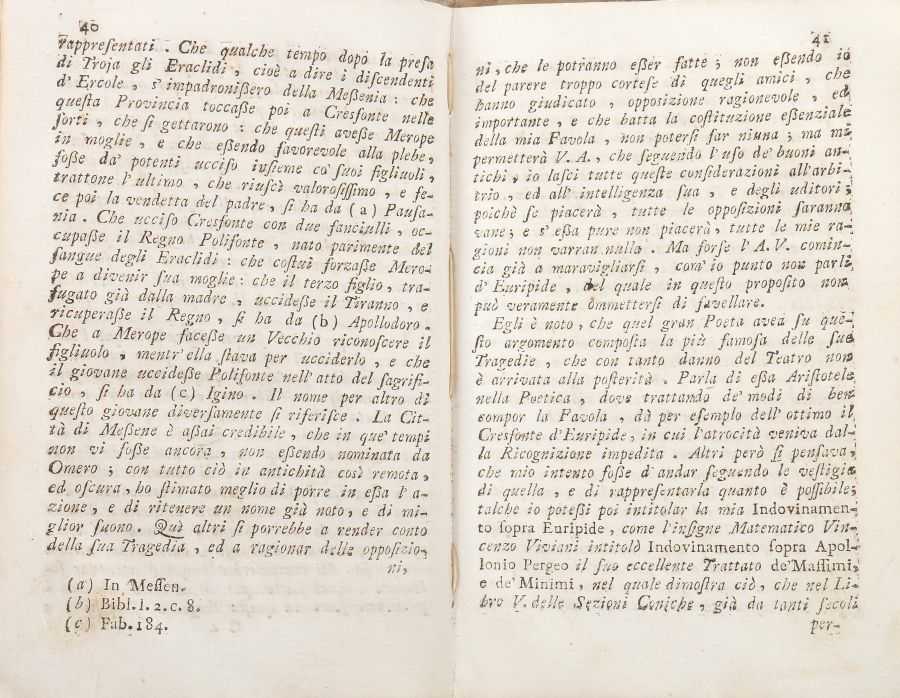 40
rappresentati . Che qualche tempo dopo la presa
di Troja gli Eraclidi , cioè a dire i discendenti
d' Ercole , s' impadronißero della Meßenia : che
questa Provincia toccaße poi a Cresfonte nelle
sorti , che si gettarono : che questi aveße Merope
in moglie , e che eßendo favorevole alla plebe,
foße da' potenti ucciso insieme co' suoi figliuoli,
trattone l' ultimo , che riuscì valorosissimo , e fe-
ce poi la vendetta del padre , si ha da (a) Pausa-
nia . Che ucciso Cresfonte con due fanciulli , oc-
cupaße il Regno Polifonte , nato parimente del
sangue degli Eraclidi : che costui forzaße Mero-
pe a divenir sua moglie : che il terzo figlio , tra-
fugato già dalla madre , uccideße il Tiranno , e
ricuperaße il Regno , si ha da (b) Apollodoro .
Che a Merope faceße un Vecchio riconoscere il
figliuolo , mentr' ella stava per ucciderlo , e che
il giovane uccideße Polifonte nell' atto del sagrifi-
cio , si ha da (c) Igino . Il nome per altro di
questo giovane diversamente si riferisce . La Cit-
tà di Meßene è aßai credibile , che in que' tempi
non vi foße ancora , non eßendo nominata da
Omero ; con tutto ciò in antichità così remota ,
ed oscura , ho stimato meglio di porre in eßa l' a-
zione , e di ritenere un nome già noto , e di mi-
glior suono . Quì altri si porrebbe a render conto
della sua Tragedia , ed a ragionar delle opposizio-
ni,
(a) In Messen.
(b) Bibl. l. 2. c. 8.
(c) Fab. 184.
41
ni , che le potranno eßer fatte ; non eßendo io
del parere troppo cortese di quegli amici , che
hanno giudicato , opposizione ragionevole , ed
importante , e che batta la costituzione eßenziale
della mia Favola , non potersi far niuna ; ma mi
permetterà V. A. , che seguendo l' uso de' buoni an-
tichi , io lasci tutte queste considerazioni all' arbi-
trio , ed all' intelligenza sua , e degli uditori ;
poichè se piacerà , tutte le opposizioni saranno
vane ; e s' eßa pure non piacerà , tutte le mie ra-
gioni non varran nulla . Ma forse l' A. V. comin-
cia già a maravigliarsi , com' io punto non parli
d' Euripide , del quale in questo proposito non
può veramente ommettersi di favellare.
Egli è noto , che quel gran Poeta avea su que-
sto argomento composta la più famosa delle sue
Tragedie , che con tanto danno del Teatro non
è arrivata alla posterità . Parla di eßa Aristotele
nella Poetica , dove trattando de' modi di ben
compor la Favola , dà per esempio dell' ottimo il
Cresfonte d' Euripide , in cui l' atrocità veniva dal-
la Ricognizione impedita . Altri però si pensava ,
che mio intento foße d' andar seguendo le vestigia
di quella , e di rappresentarla quanto è poßibile ;
talche io poteßi poi intitolar la mia Indovinamen-
to sopra Euripide , come l' insigne Matematico Vin-
cenzo Viviani intitolò Indovinamento sopra Apol-
lonio Pergeo il suo eccellente Trattato de' Massimi,
e de' Minimi , nel quale dimostra ciò , che nel Li-
bro V. delle Sezioni Coniche , già da tanti secoli
per-